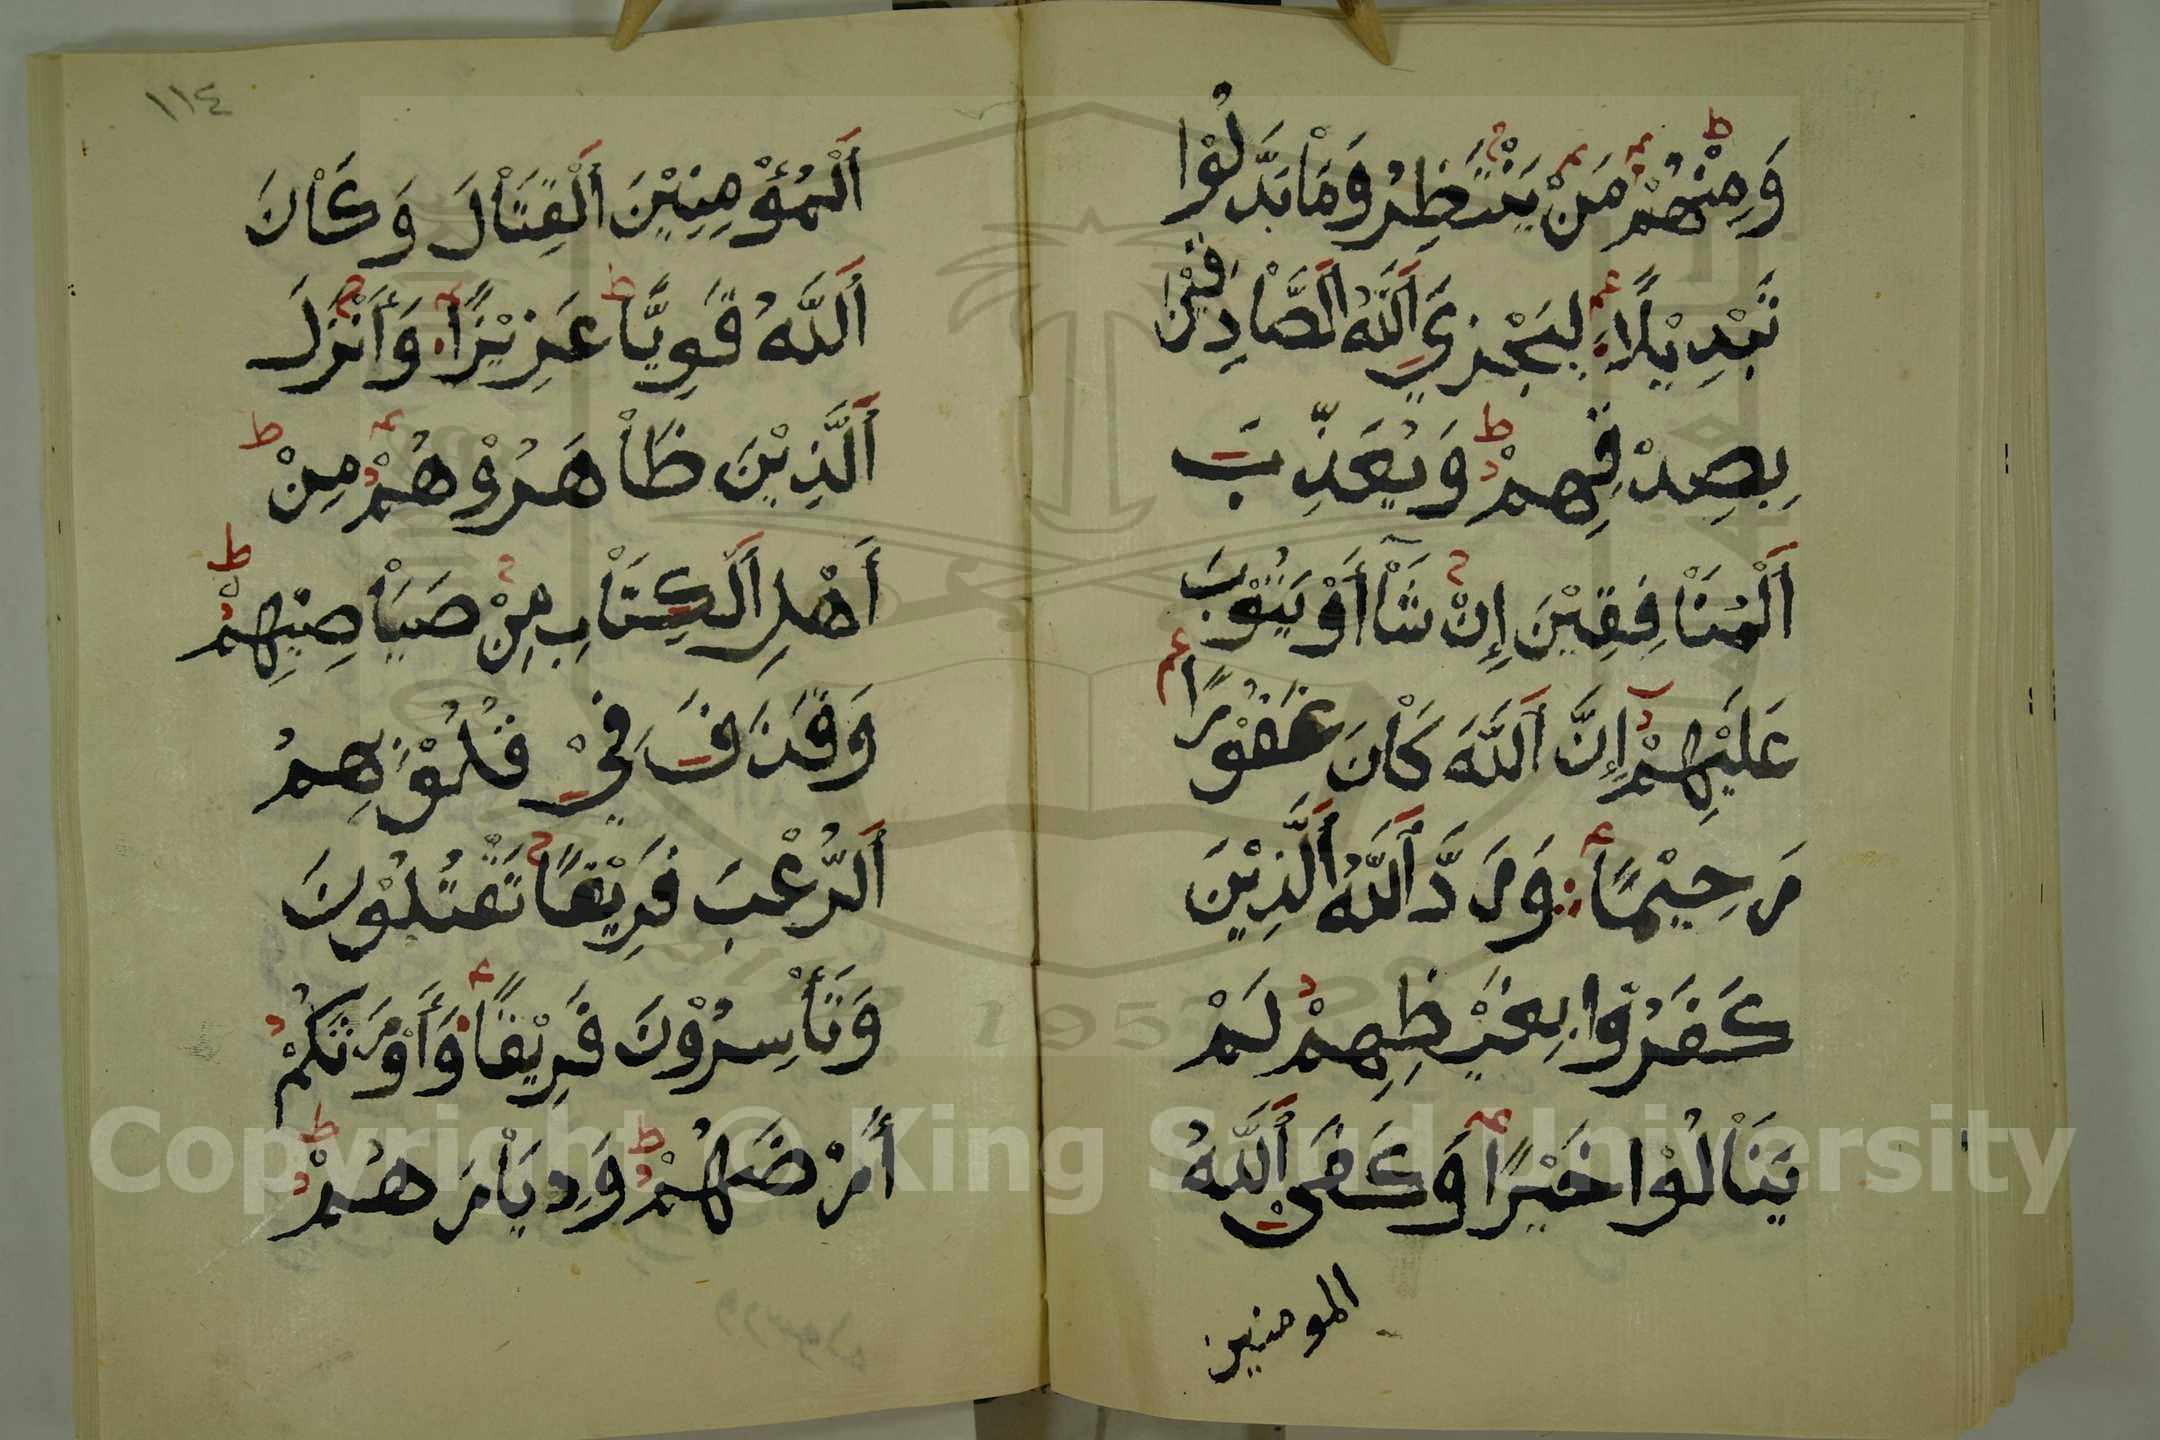 وَمِنْهُمْ مَنْ يَنْتَظِرُ وَمَاْ بَدَّلُوْا
تَبْدِيْلًا لِيَجْزِيَ اَللَّهُ اَلصَّاْدِقِيْنَ
بِصِدْقِهِمْ وَيُعَذِّبَ
اَلْمُنَاْفِقِيْنَ إِنْ شَاْأَوْ يَتُوْبَ
عَلَيْهِمْ إِنَّ اَللَّهَ كَاْنَ غَفُوْرًا
رَحِيْمًا وَرَدَّ اَللَّهُ اَلَّذِيْنَ
كَفَرُوْا بِغَيْظِهِمْ لَمْ
يَنَاْلُوْا خَيْرًا وَكَفَىْ اَللَّهُ
المومنين
١١٤
اَلْمُؤْمِنِيْنَ اَلْقِتَاْلَ وَكَاْنَ
اَللَّهُ قَوِيًّا عَزِيْزًا وَأَنْزَلَ
اَلَّذِيْنَ ظَاْهَرُوْهُمْ مِنْ
أَهْلِ اَلْكِتَاْبِ مِنْ صَيَاْصِيْهِمْ
وَقَذَفَ فِيْ قُلُوْبِهِمُ
اَلرُّعْبَ فَرِيْقًا تَقْتُلُوْنَ
وَتَأْسِرُوْنَ فَرِيْقًا وَأَوْرَثَكُمْ
أَرْضَهُمْ وَدِيَاْرَهُمْ
Copyright © King Saud University
1957